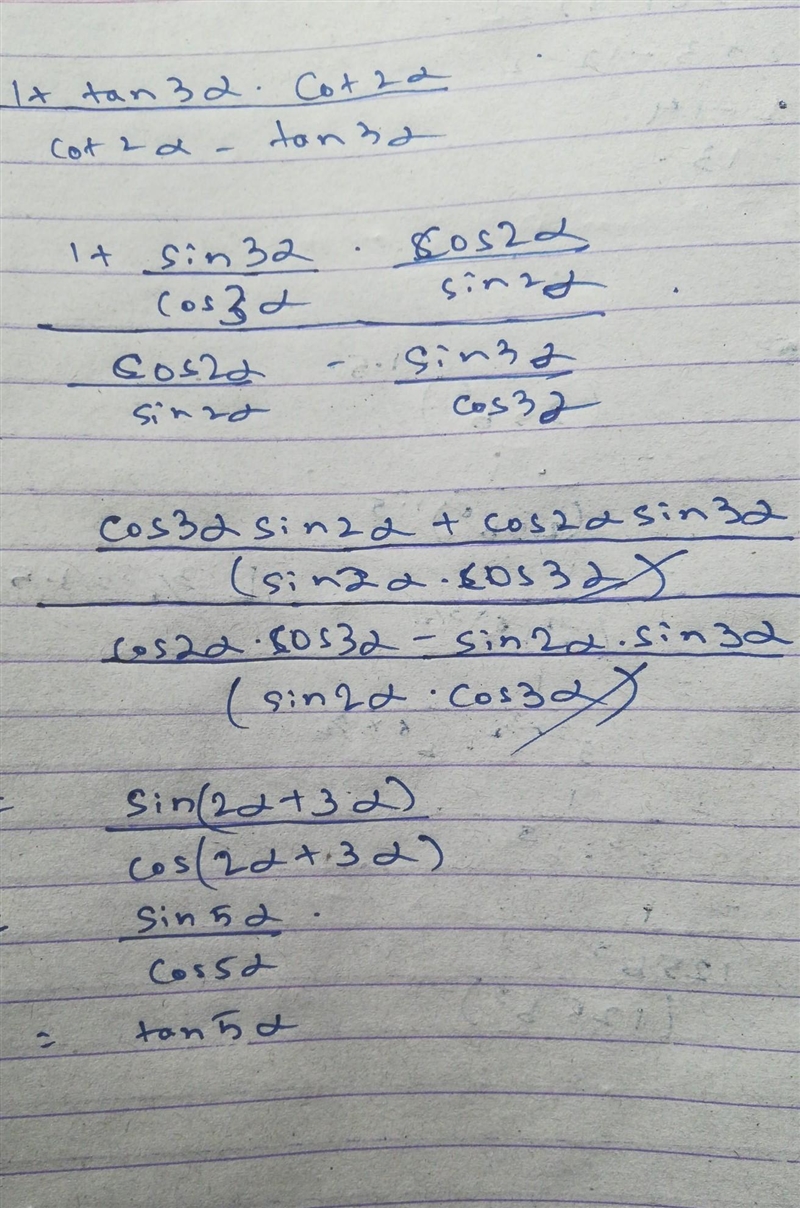 1+ tan3α · cot2α
cot2α - tan3α
1+ sin3α · cos2α
cos3α sin2α
cos2α - sin3α
sin2α cos3α
cos3α sin2α + cos2α sin3α
(sin2α · cos3α)
cos2α · cos3α - sin2α · sin3α
(sin2α · cos3α)
= sin(2α+3α)
cos(2α+3α)
= sin5α
cos5α
= tan5α